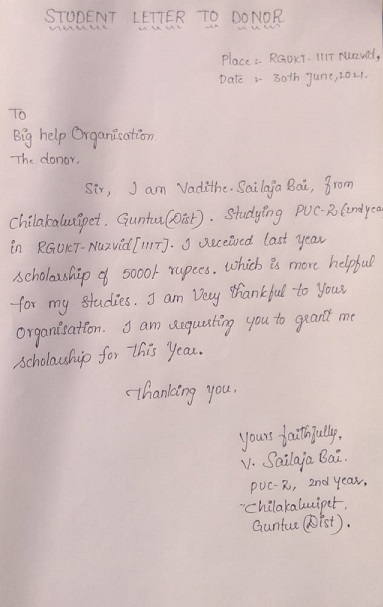 STUDENT LETTER TO DONOR
Place :- RGUKT- IIIT Nuzvid,
Date :- 30th June, 2021.
To
Big help Organisation.
The donor.
Sir, I am Vadithe. Sailaja Bai, from
Chilakaluripet. Guntur(Dist). Studying PUC-2 (2nd yea
in RGUKT-Nuzvid[IIIT]. I received last year
scholarship of 5000/- rupees. which is more helpful
for my studies. I am Very thankful to Your
Organisation. I am requesting you to grant me
scholarship for this Year.
Thanking you.
Yours faithfully,
V. Sailaja Bai.
PUC-2, 2nd year,
Chilakaluripet,
Guntur (Dist).